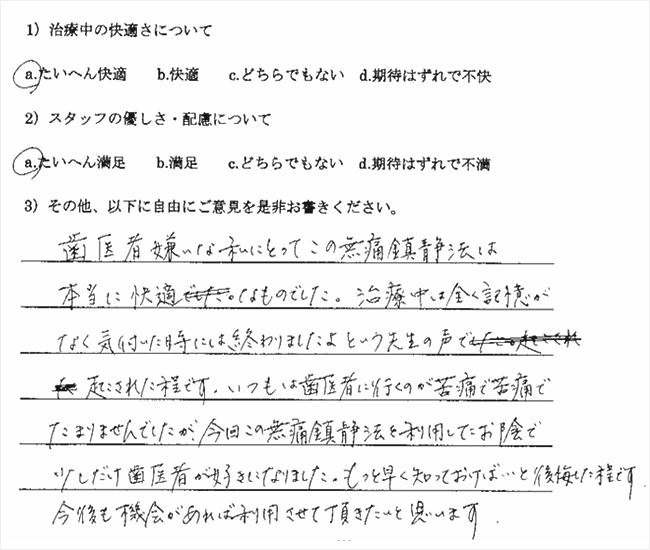 1）治療中の快適さについて
a.たいへん快適　b.快適　c.どちらでもない　d.期待はずれで不快
2）スタッフの優しさ・配慮について
a.たいへん満足　b.満足　c.どちらでもない　d.期待はずれで不満
3）その他、以下に自由にご意見を是非お書きください。
歯医者嫌いな私にとってこの無痛鎮静法は
本当に快適なものでした。治療中は全く記憶が
なく気付いた時には終わりましたよという先生の声で
起こされた程です。いつもは歯医者に行くのが苦痛で苦痛で
たまりませんでしたが、今回この無痛鎮静法を利用したお陰で
少しだけ歯医者が好きになりました。もっと早く知っておけばいいと後悔した程です。
今後も機会があれば利用させて頂きたいと思います。